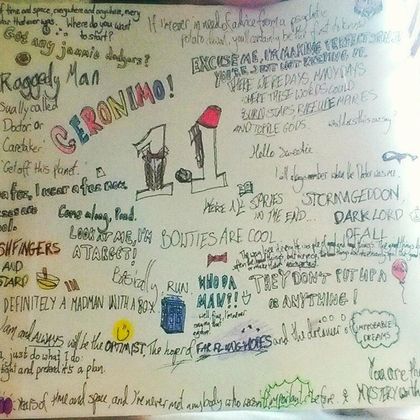 of time and space, everywhere and anywhere, every
Where do you want
to start?
Got any jammie dodgers?
If I'm ever in need of advice from a psychotic
potato dwarf, you'll certainly be the first to know
EXCUSE ME, I'M MAKING PERFECT SENSE.
YOU'RE JUST NOT KEEPING UP.
Raggedy Man
GERONIMO!
THERE WERE DAYS, MANY DAYS
WHERE THESE WORDS COULD
BURN STARS, RAISE UP EMPIRES
AND TOPPLE GODS.
what does this one say?
usually called
Doctor or
Caretaker
Get off this planet.
Hello Sweetie
11
I will always remember when the Doctor was me.
a fez, I wear a fez now.
Come along, Pond.
WE'RE ALL STORIES
IN THE END...
STORMAGEDDON,
DARK LORD
OF ALL
LOOK AT ME, I'M
A TARGET!
BOWTIES ARE COOL
FISHFINGERS
AND
Basically, run.
WHOPA
MAN!!
THEY DON'T PUT UP A
or ANYTHING!
DEFINITELY A MADMAN WITH A BOX
I am and ALWAYS will be the OPTIMIST. The hoper of FAR FLUNG HOPES and the dreamer of IMPROBABLE
DREAMS
just do what I do:
tight and pretend it's a plan.
You are the
years of time and space, and I've never met anybody who wasn't important before &
MYSTERY